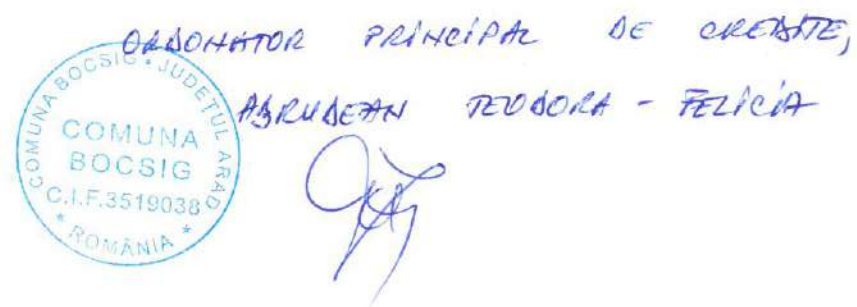 ORDONATOR PRINCIPAL DE CREDITE,
ABRUDEAN TEODORA - FELICIA
COMUNA BOCSIG * JUDEȚUL ARAD
COMUNA
BOCSIG
C.I.F.3519038
* ROMÂNIA *